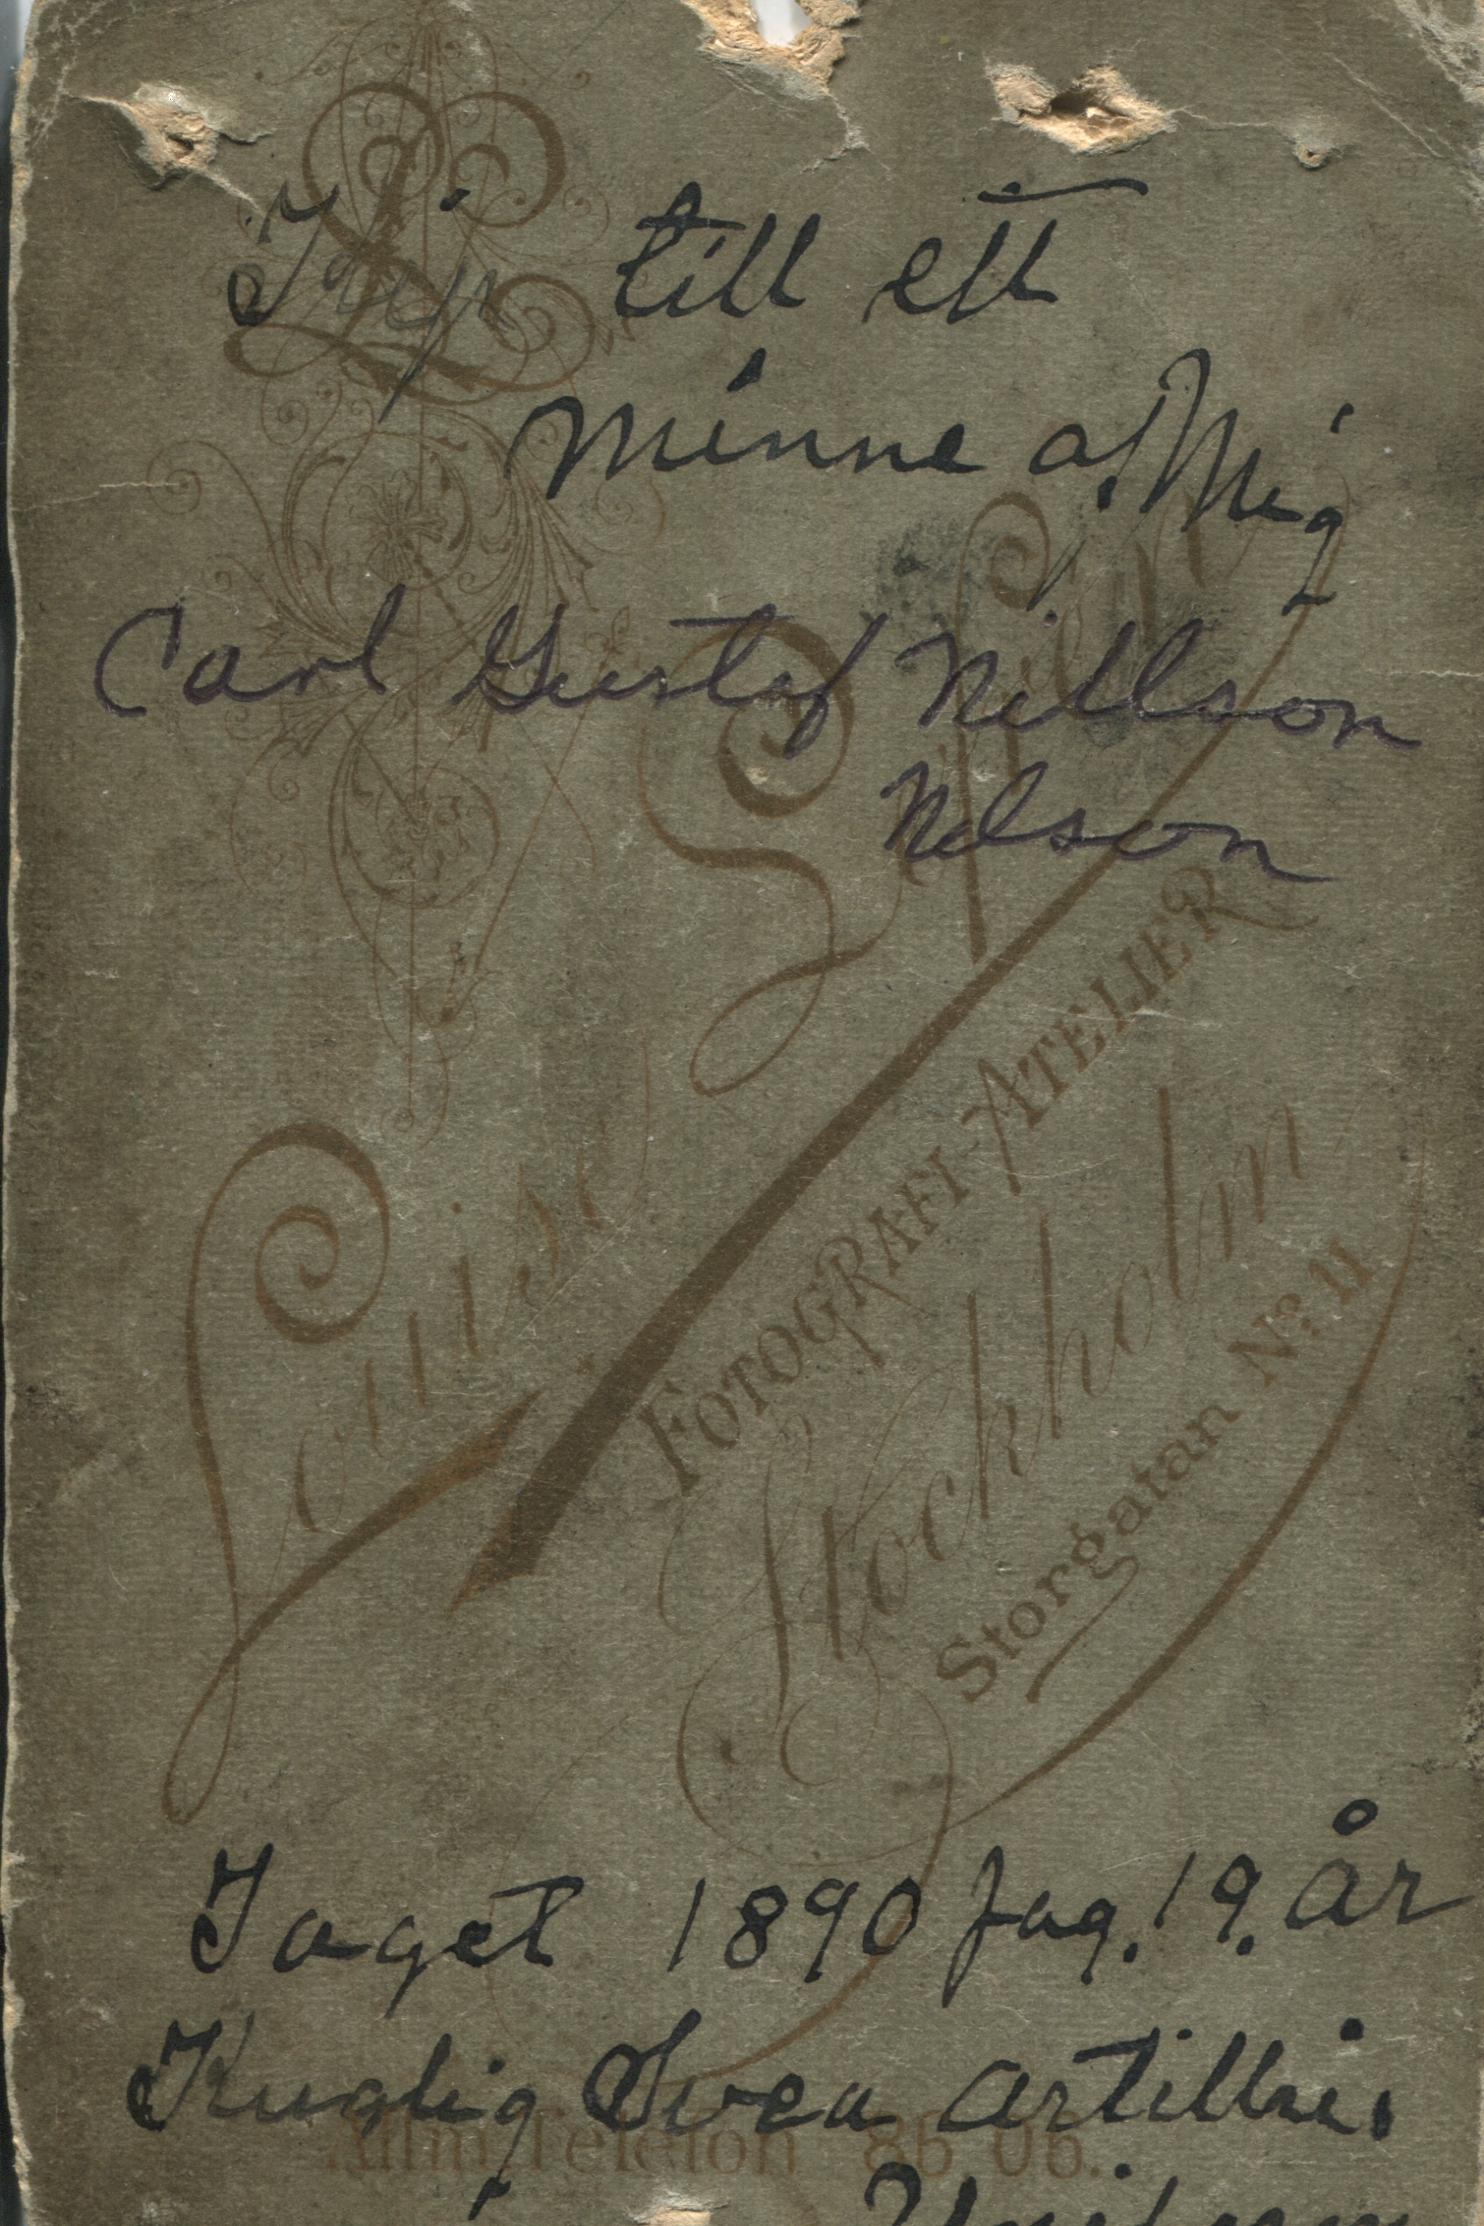 till ett
minne af Mig
Carl Gustaf Nillson
Nelson
Louise
FOTOGRAFI-ATELIER
Stockholm
Storgatan No. 11
Taget 1890 Jag. 19. år
Kunglig Svea artilleri
Allm. Telefon 86 06.